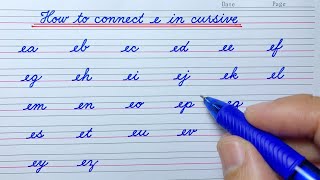 Date Page
How to connect e in cursive
ea eb ec ed ee ef
eg eh ei ej ek el
em en eo ep eq
es et eu ev
ey ez